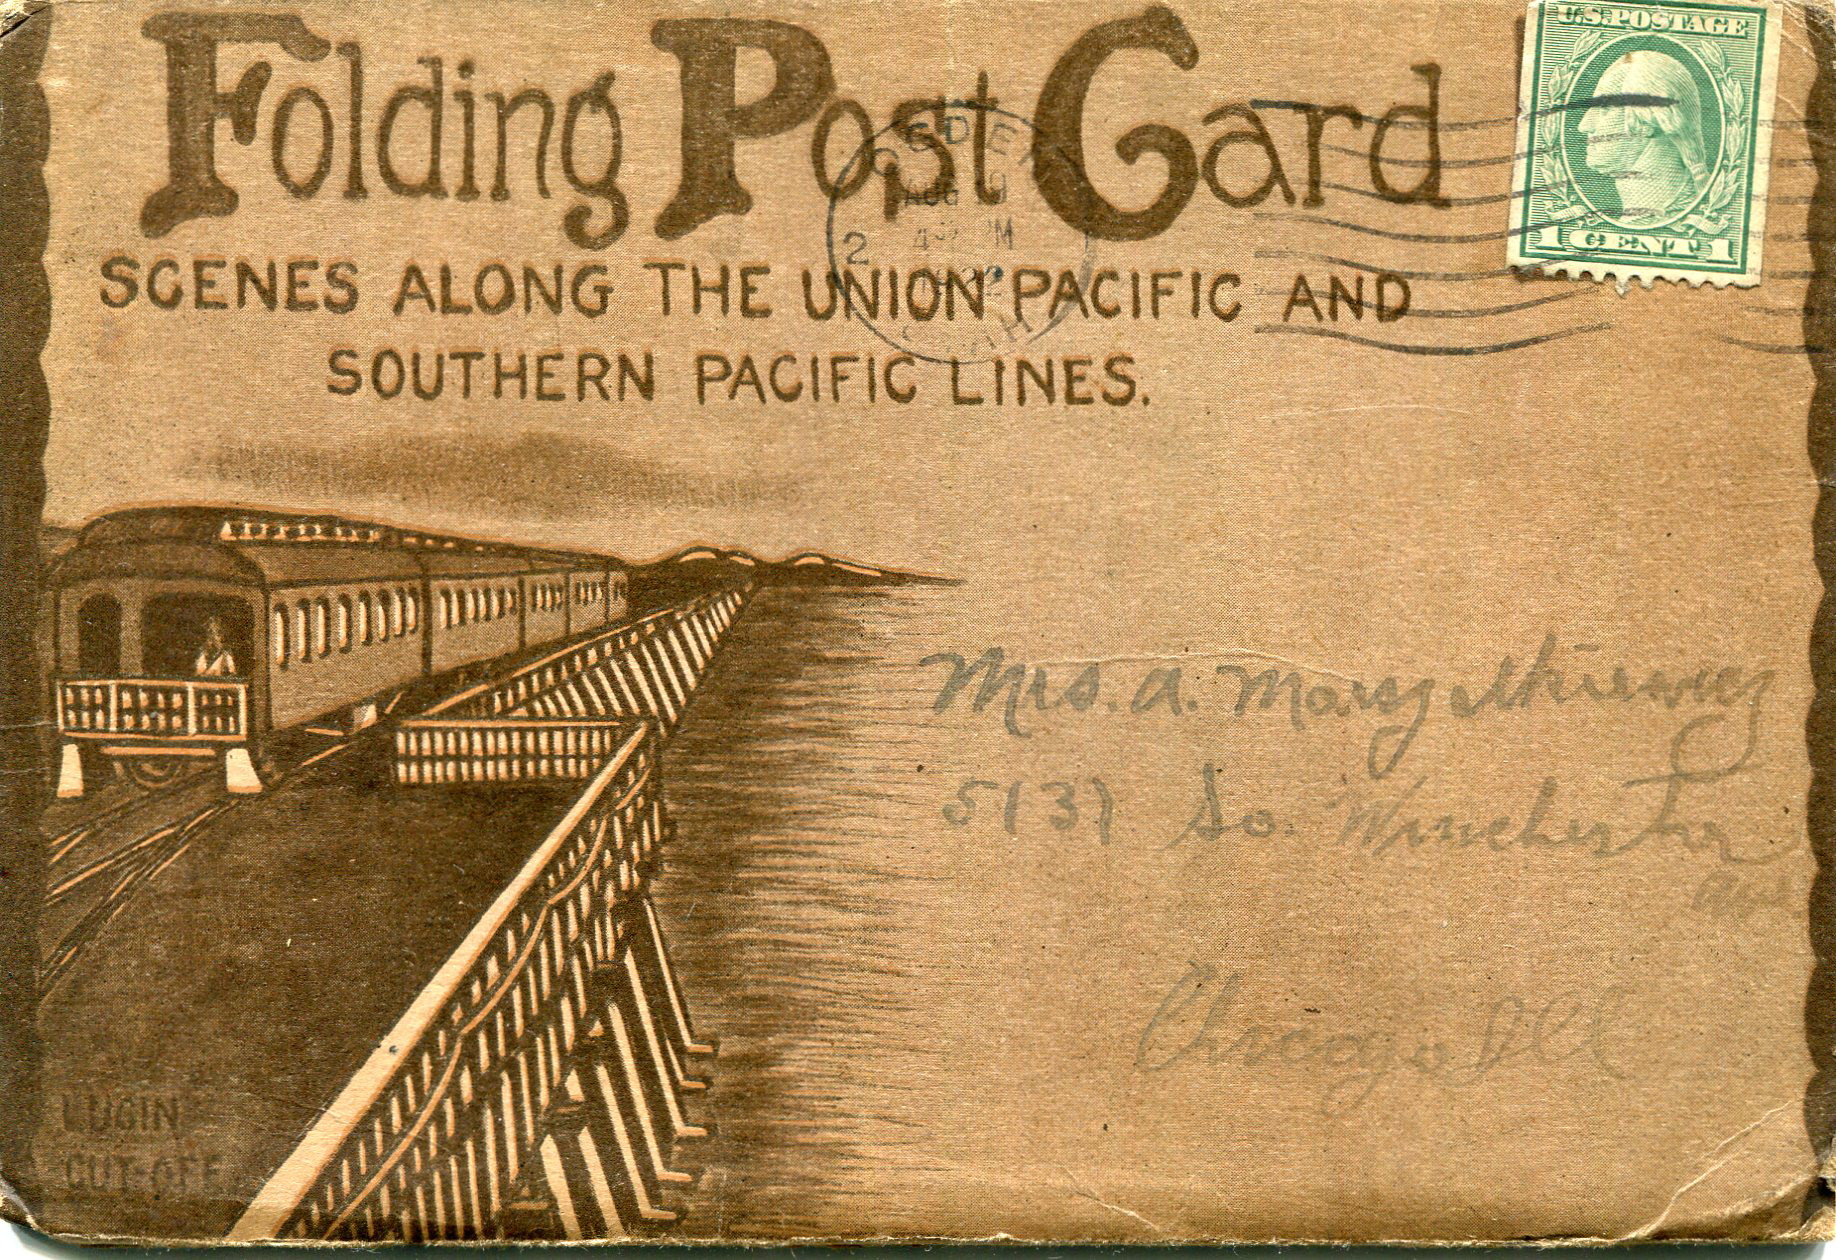 Folding Post Card
U.S. POSTAGE
1 CENT 1
OGDEN
AUG
2
UTAH
SCENES ALONG THE UNION PACIFIC AND
SOUTHERN PACIFIC LINES.
Mrs. A. Mary
5137 So. Winchester
Ave
Chicago Ill
LUCIN
CUT-OFF